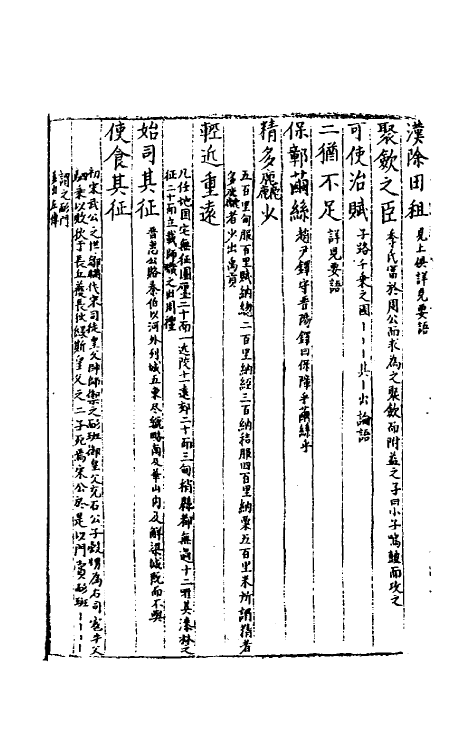 漢除田租 見上俱詳見要語
聚斂之臣 季氏富於周公而求為之聚斂而附益之子曰小子鳴鼓而攻之
可使治賦 子路千乘之國丨丨丨其丨出論語
二猶不足 詳見要語
保鄣繭絲 趙尹鐸守晉陽鐸曰保障乎繭絲乎
精多麤少
五百里甸服百里賦納緫二百里納絰三百納秸服四百里納粟五百里米所謂精者
多麤者少出禹貢
輕近重遠
凡任地國宅無征園廛二十而一近郊十一遠郊二十而三甸稍縣都無過十二唯其漆林之
征二十而五載師職之出周禮
始司其征 晉惠公賂秦伯以河外列城五東盡虢略南及華山內及解梁城既而不與
使食其征
初宋武公之世鄋瞞伐宋司徒皇父帥師禦之耏班御皇父充石公子穀甥為右司寇牛父
駟乘以敗狄于長丘獲長狄緣斯皇父之二子死焉宋公於是以門賞耏班丨丨丨丨
謂之耏門
並出左傳